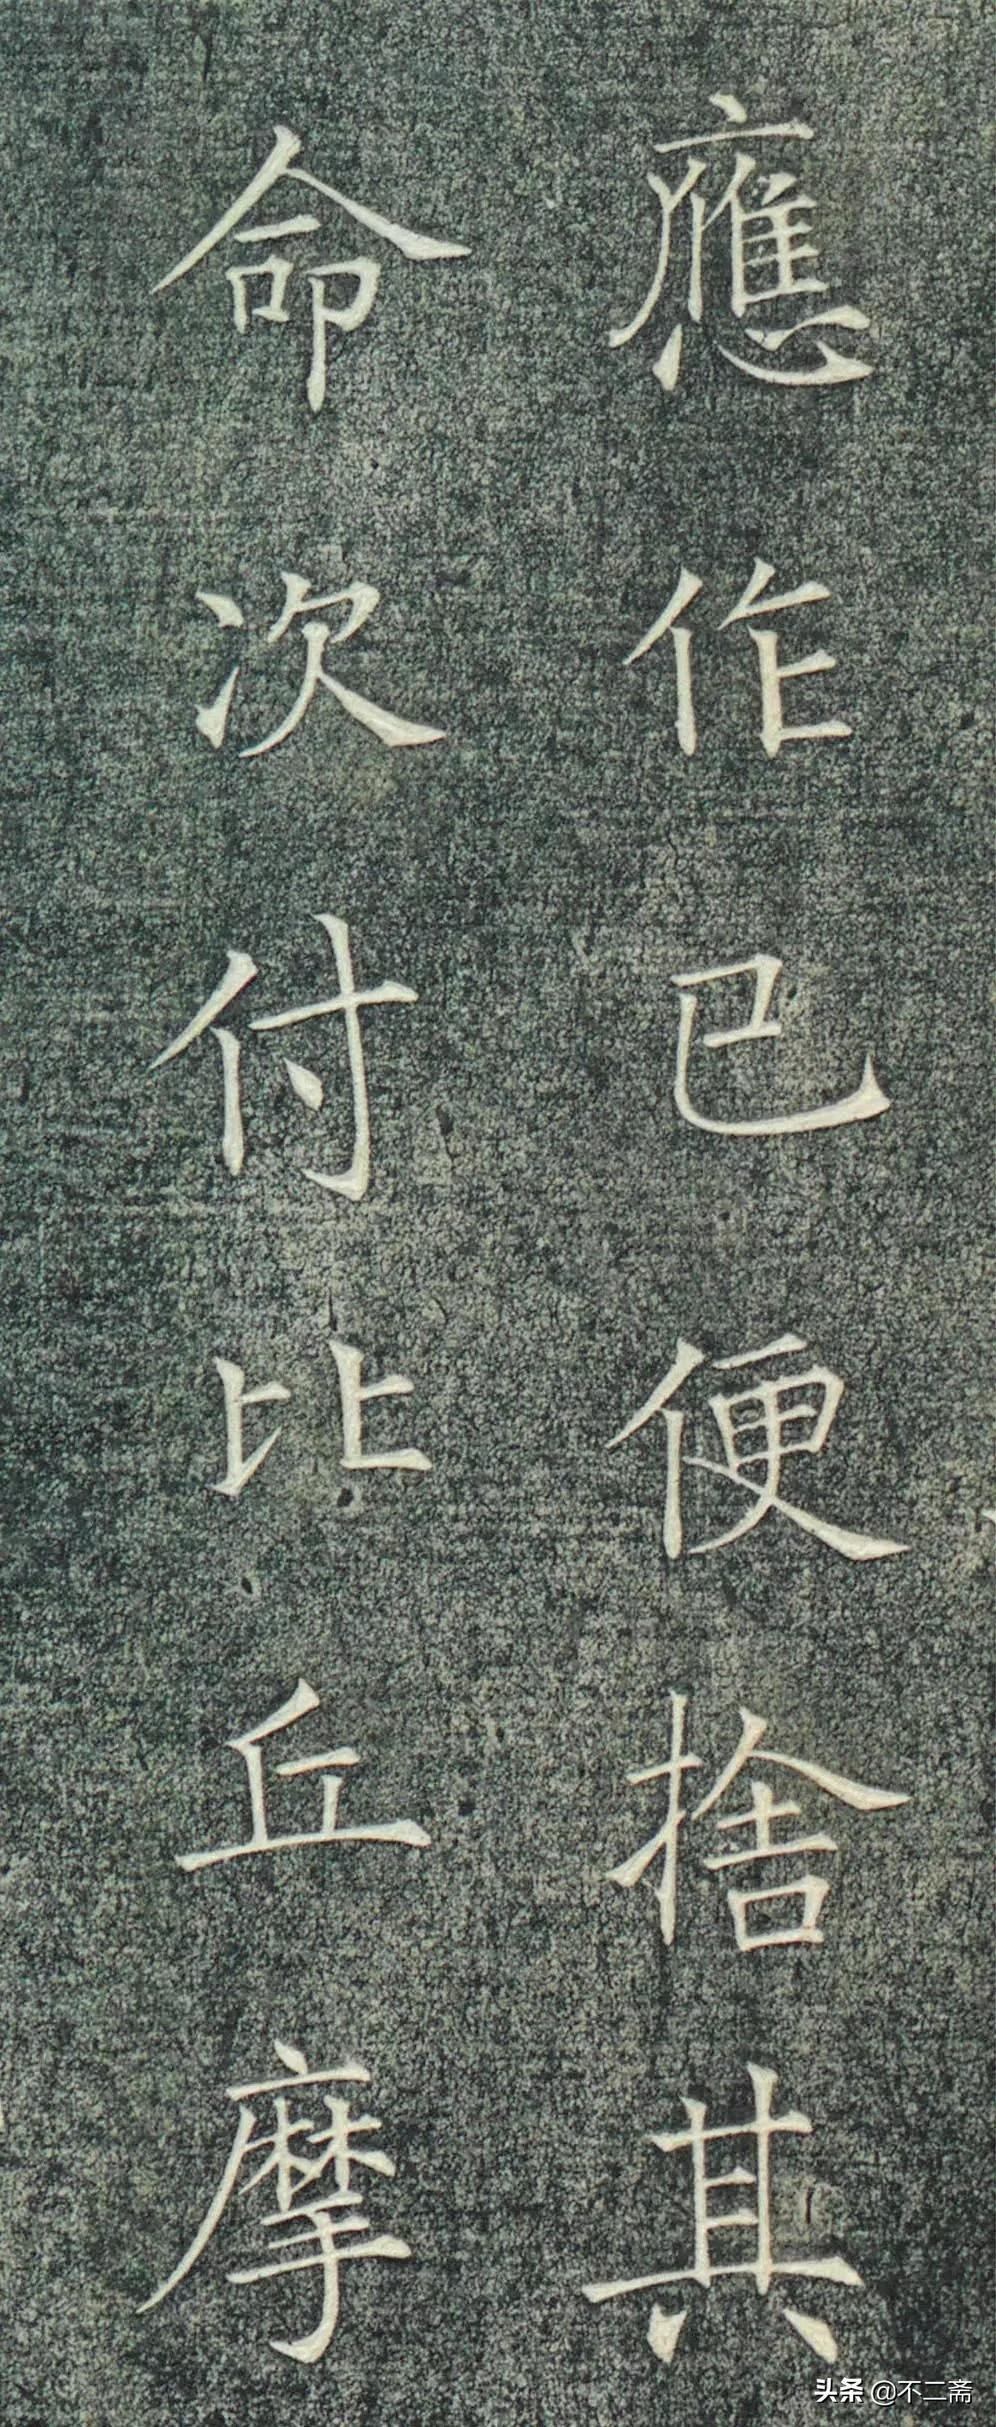 應作已便捨其
命次付比丘摩
头条 @不二斋